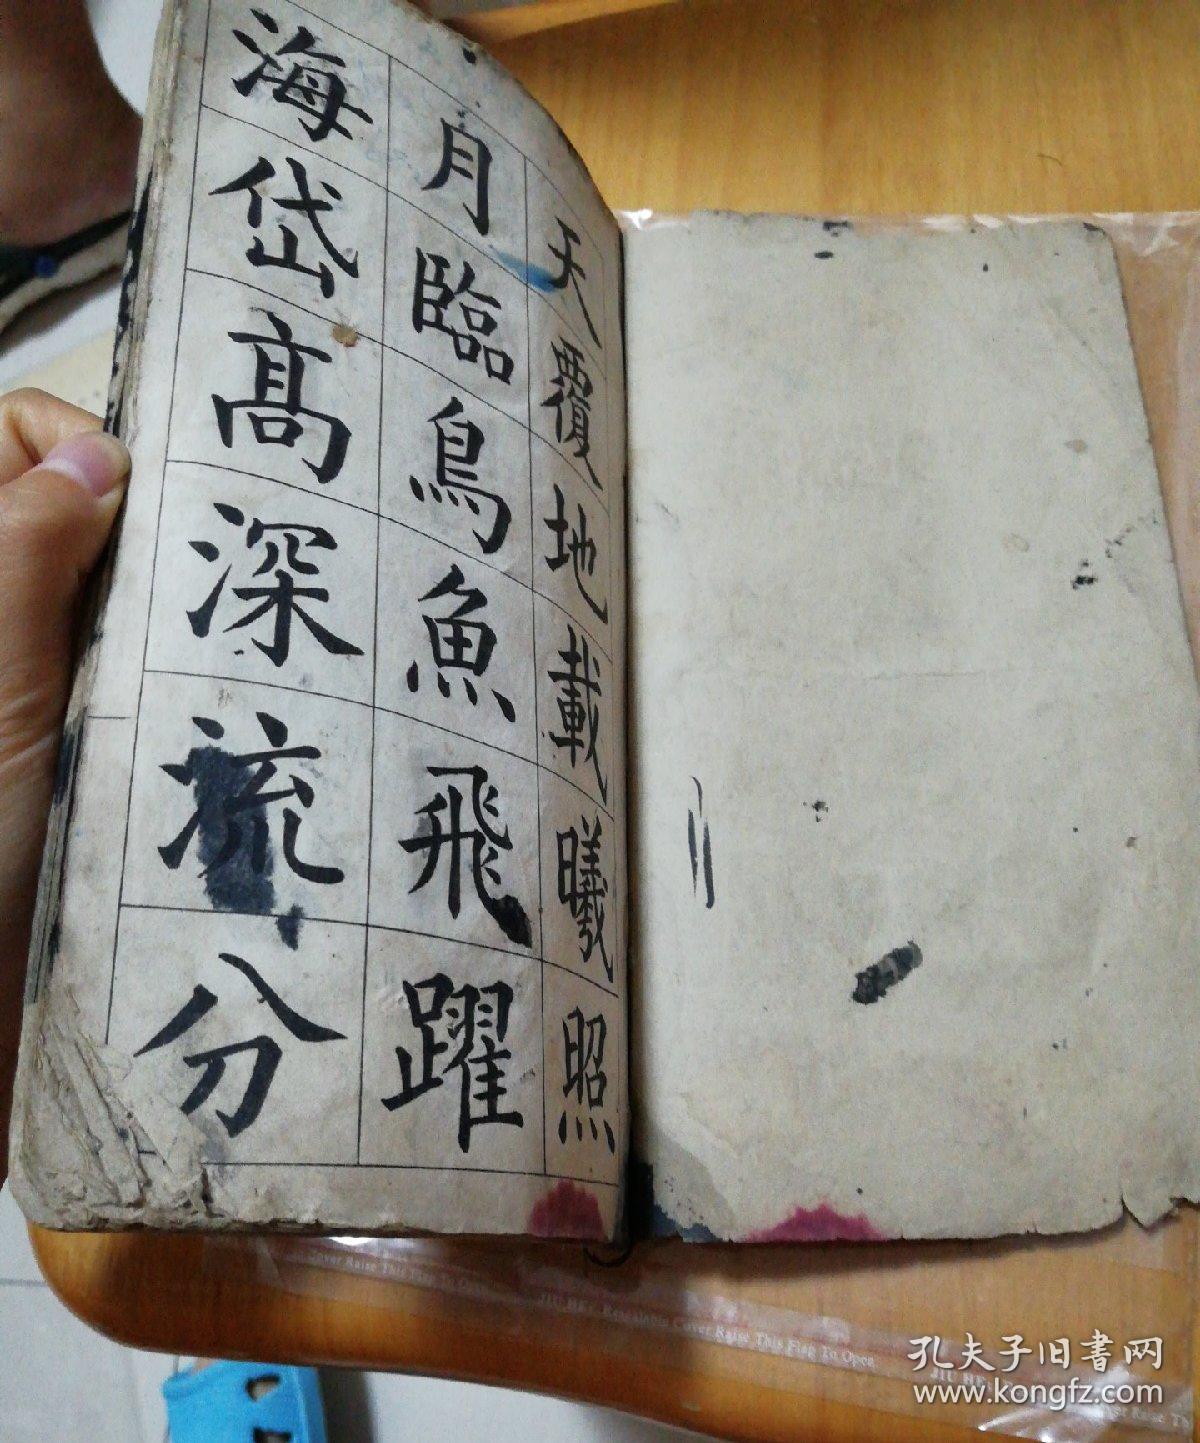 天覆地載曦照
月臨鳥魚飛躍
海岱高深流分
JIU HE: Resealable Cover Raise This Flap To Open.
JIU HE:
孔夫子旧書网
www.kongfz.com